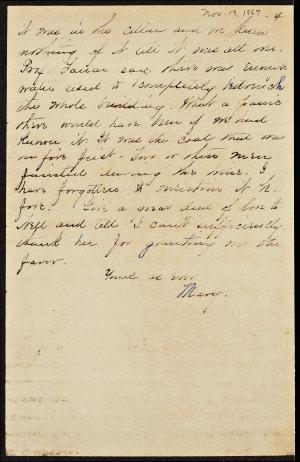 Nov. 19, 1867 - 4
it was in the cellar and we knew
nothing of it till it was all over.
Prof. Farrar said there was enough
water used to completely drench
the whole building. What a panic
there would have been if we had
known it. It was the coal that was
on fire first - two or three men
fainted during the time. I
have forgotten to mention it be
fore. Give a great deal of love to
Nell and tell I can't sufficiently
thank her for granting me the
favor.
Yours as ever
Mary.